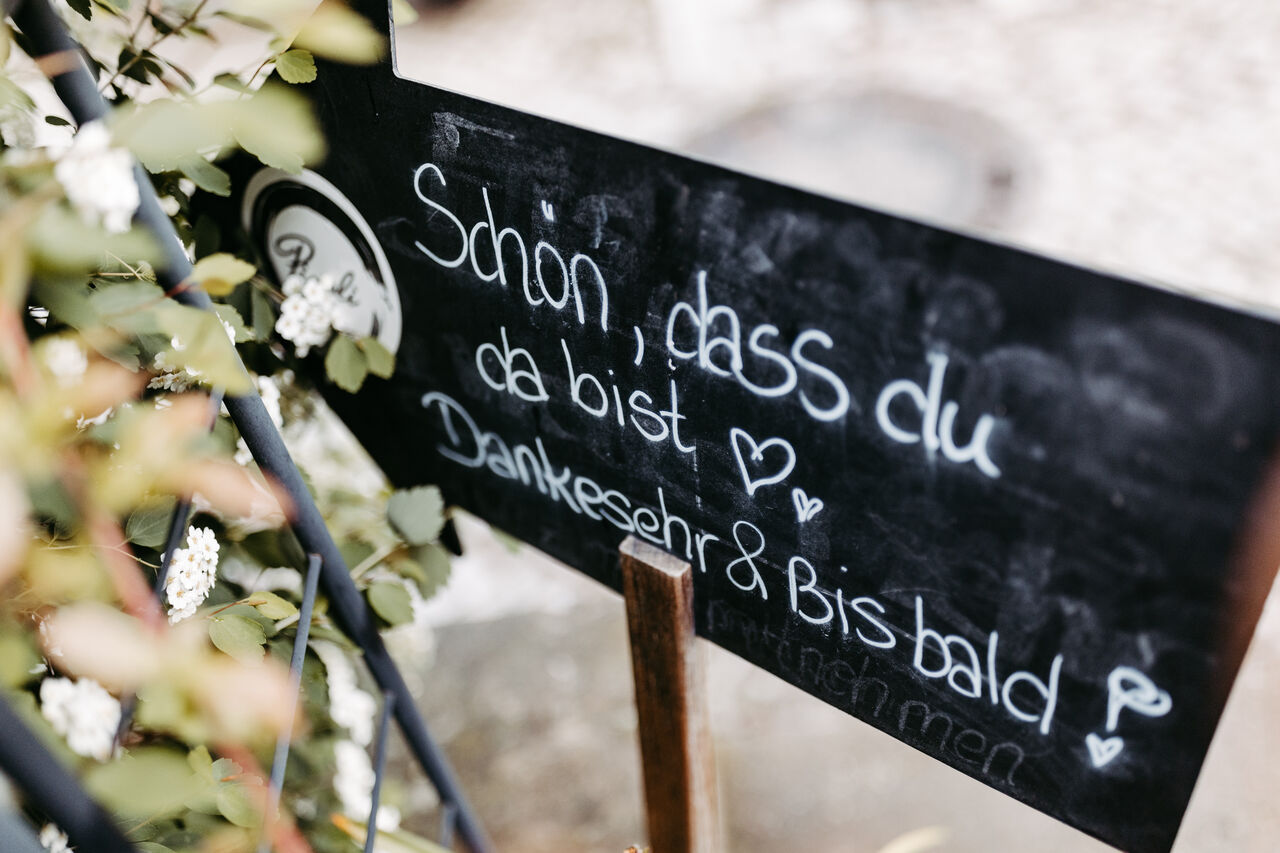 Schön, dass du
da bist
Dankesehr & Bis bald !
mitnehmen